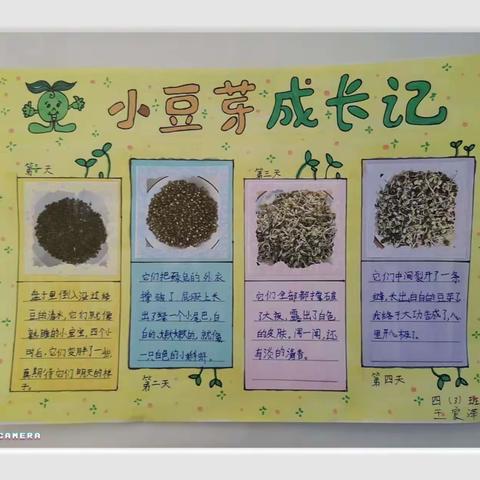 小豆芽成长记
第一天
盘子里倒入没过绿
豆的清水,它们就像
熟睡的小宝宝,四个小
时后,它们变胖了一些
真期待它们明天的样
子。
它们把绿色的外衣
撑破了,屁股上长
出了整一个小尾巴,白
白的,嫩嫩的,就像
一只白色的小蝌蚪。
第二天
第三天
它们全部都撑破
了大板,露出了白色
的皮肤。闻一闻,还
有淡淡的清香。
它们中间裂开了一条
缝,长出白白的豆芽了
我终于大功告成了,心
里开心极了。
第四天
四(3)班
CAMERA